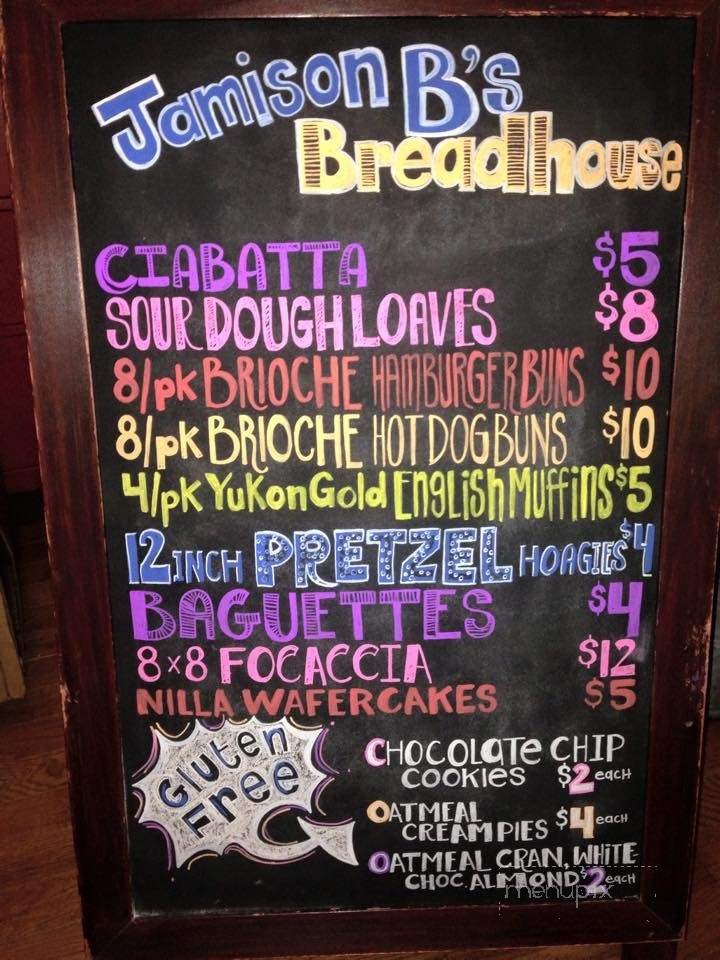 Jamison B's
Breadhouse
CIABATTA $5
SOUR DOUGH LOAVES $8
8/pk BRIOCHE HAMBURGER BUNS $10
8/pk BRIOCHE HOT DOG BUNS $10
4/pk YuKon Gold English Muffins $5
12 INCH PRETZEL HOAGIES $4
BAGUETTES $4
8x8 FOCACCIA $12
NILLA WAFER CAKES $5
Gluten
Free
CHOCOLATE CHIP
COOKIES $2 each
OATMEAL
CREAM PIES $4 each
OATMEAL CRAN, WHITE
CHOC. ALMOND $2 each
menupix